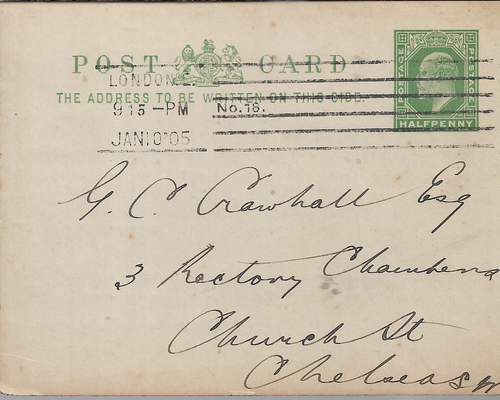 POST CARD
THE ADDRESS TO BE WRITTEN ON THIS SIDE.
POSTAGE
HALFPENNY
LONDON.E.
9 15 - PM
No.18.
JAN 10 '05
G. C. Crawhall Esq
3 Rectory Chambers
Church St
Chelsea SW